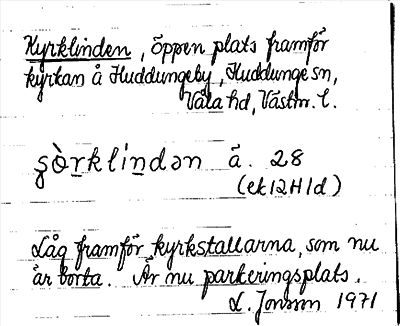 Kyrklinden, öppen plats framför
kyrkan å Huddungeby, Huddunge sn,
Våla hd, Västm. l.
şò̱rkli̱ndən ā. 28
(ek 12H1d)
Låg framför kyrkstallarna, som nu
är borta. Är nu parkeringsplats.
L. Jonson 1971